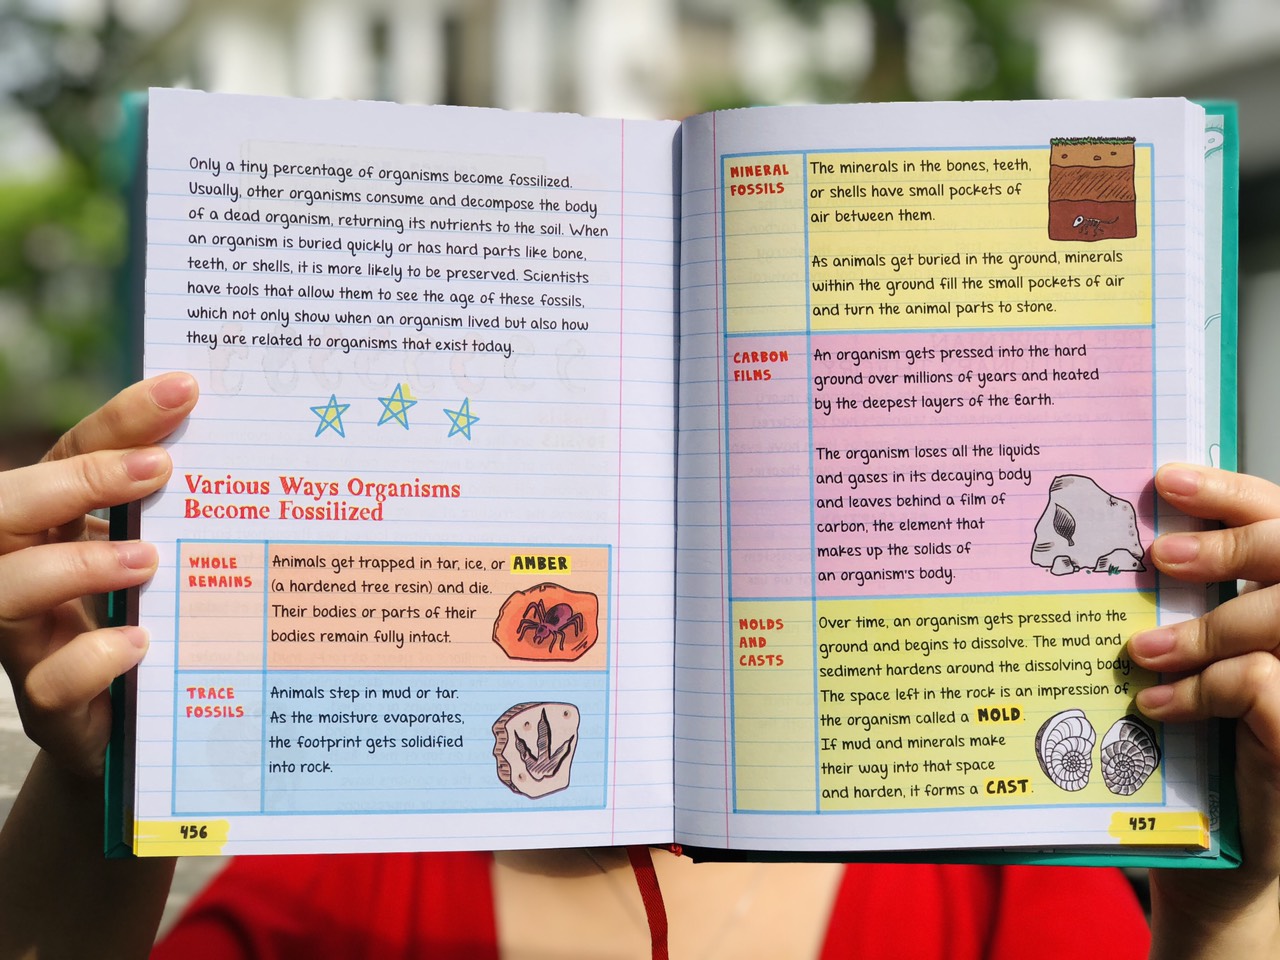 Only a tiny percentage of organisms become fossilized.
Usually, other organisms consume and decompose the body
of a dead organism, returning its nutrients to the soil. When
an organism is buried quickly or has hard parts like bone,
teeth, or shells, it is more likely to be preserved. Scientists
have tools that allow them to see the age of these fossils,
which not only show when an organism lived but also how
they are related to organisms that exist today.
Various Ways Organisms
Become Fossilized
WHOLE
REMAINS
Animals get trapped in tar, ice, or AMBER
(a hardened tree resin) and die.
Their bodies or parts of their
bodies remain fully intact.
TRACE
FOSSILS
Animals step in mud or tar.
As the moisture evaporates,
the footprint gets solidified
into rock.
456
MINERAL
FOSSILS
The minerals in the bones, teeth,
or shells have small pockets of
air between them.
As animals get buried in the ground, minerals
within the ground fill the small pockets of air
and turn the animal parts to stone.
CARBON
FILMS
An organism gets pressed into the hard
ground over millions of years and heated
by the deepest layers of the Earth.
The organism loses all the liquids
and gases in its decaying body
and leaves behind a film of
carbon, the element that
makes up the solids of
an organism's body.
MOLDS
AND
CASTS
Over time, an organism gets pressed into the
ground and begins to dissolve. The mud and
sediment hardens around the dissolving body.
The space left in the rock is an impression of
the organism called a MOLD.
If mud and minerals make
their way into that space
and harden, it forms a CAST.
457